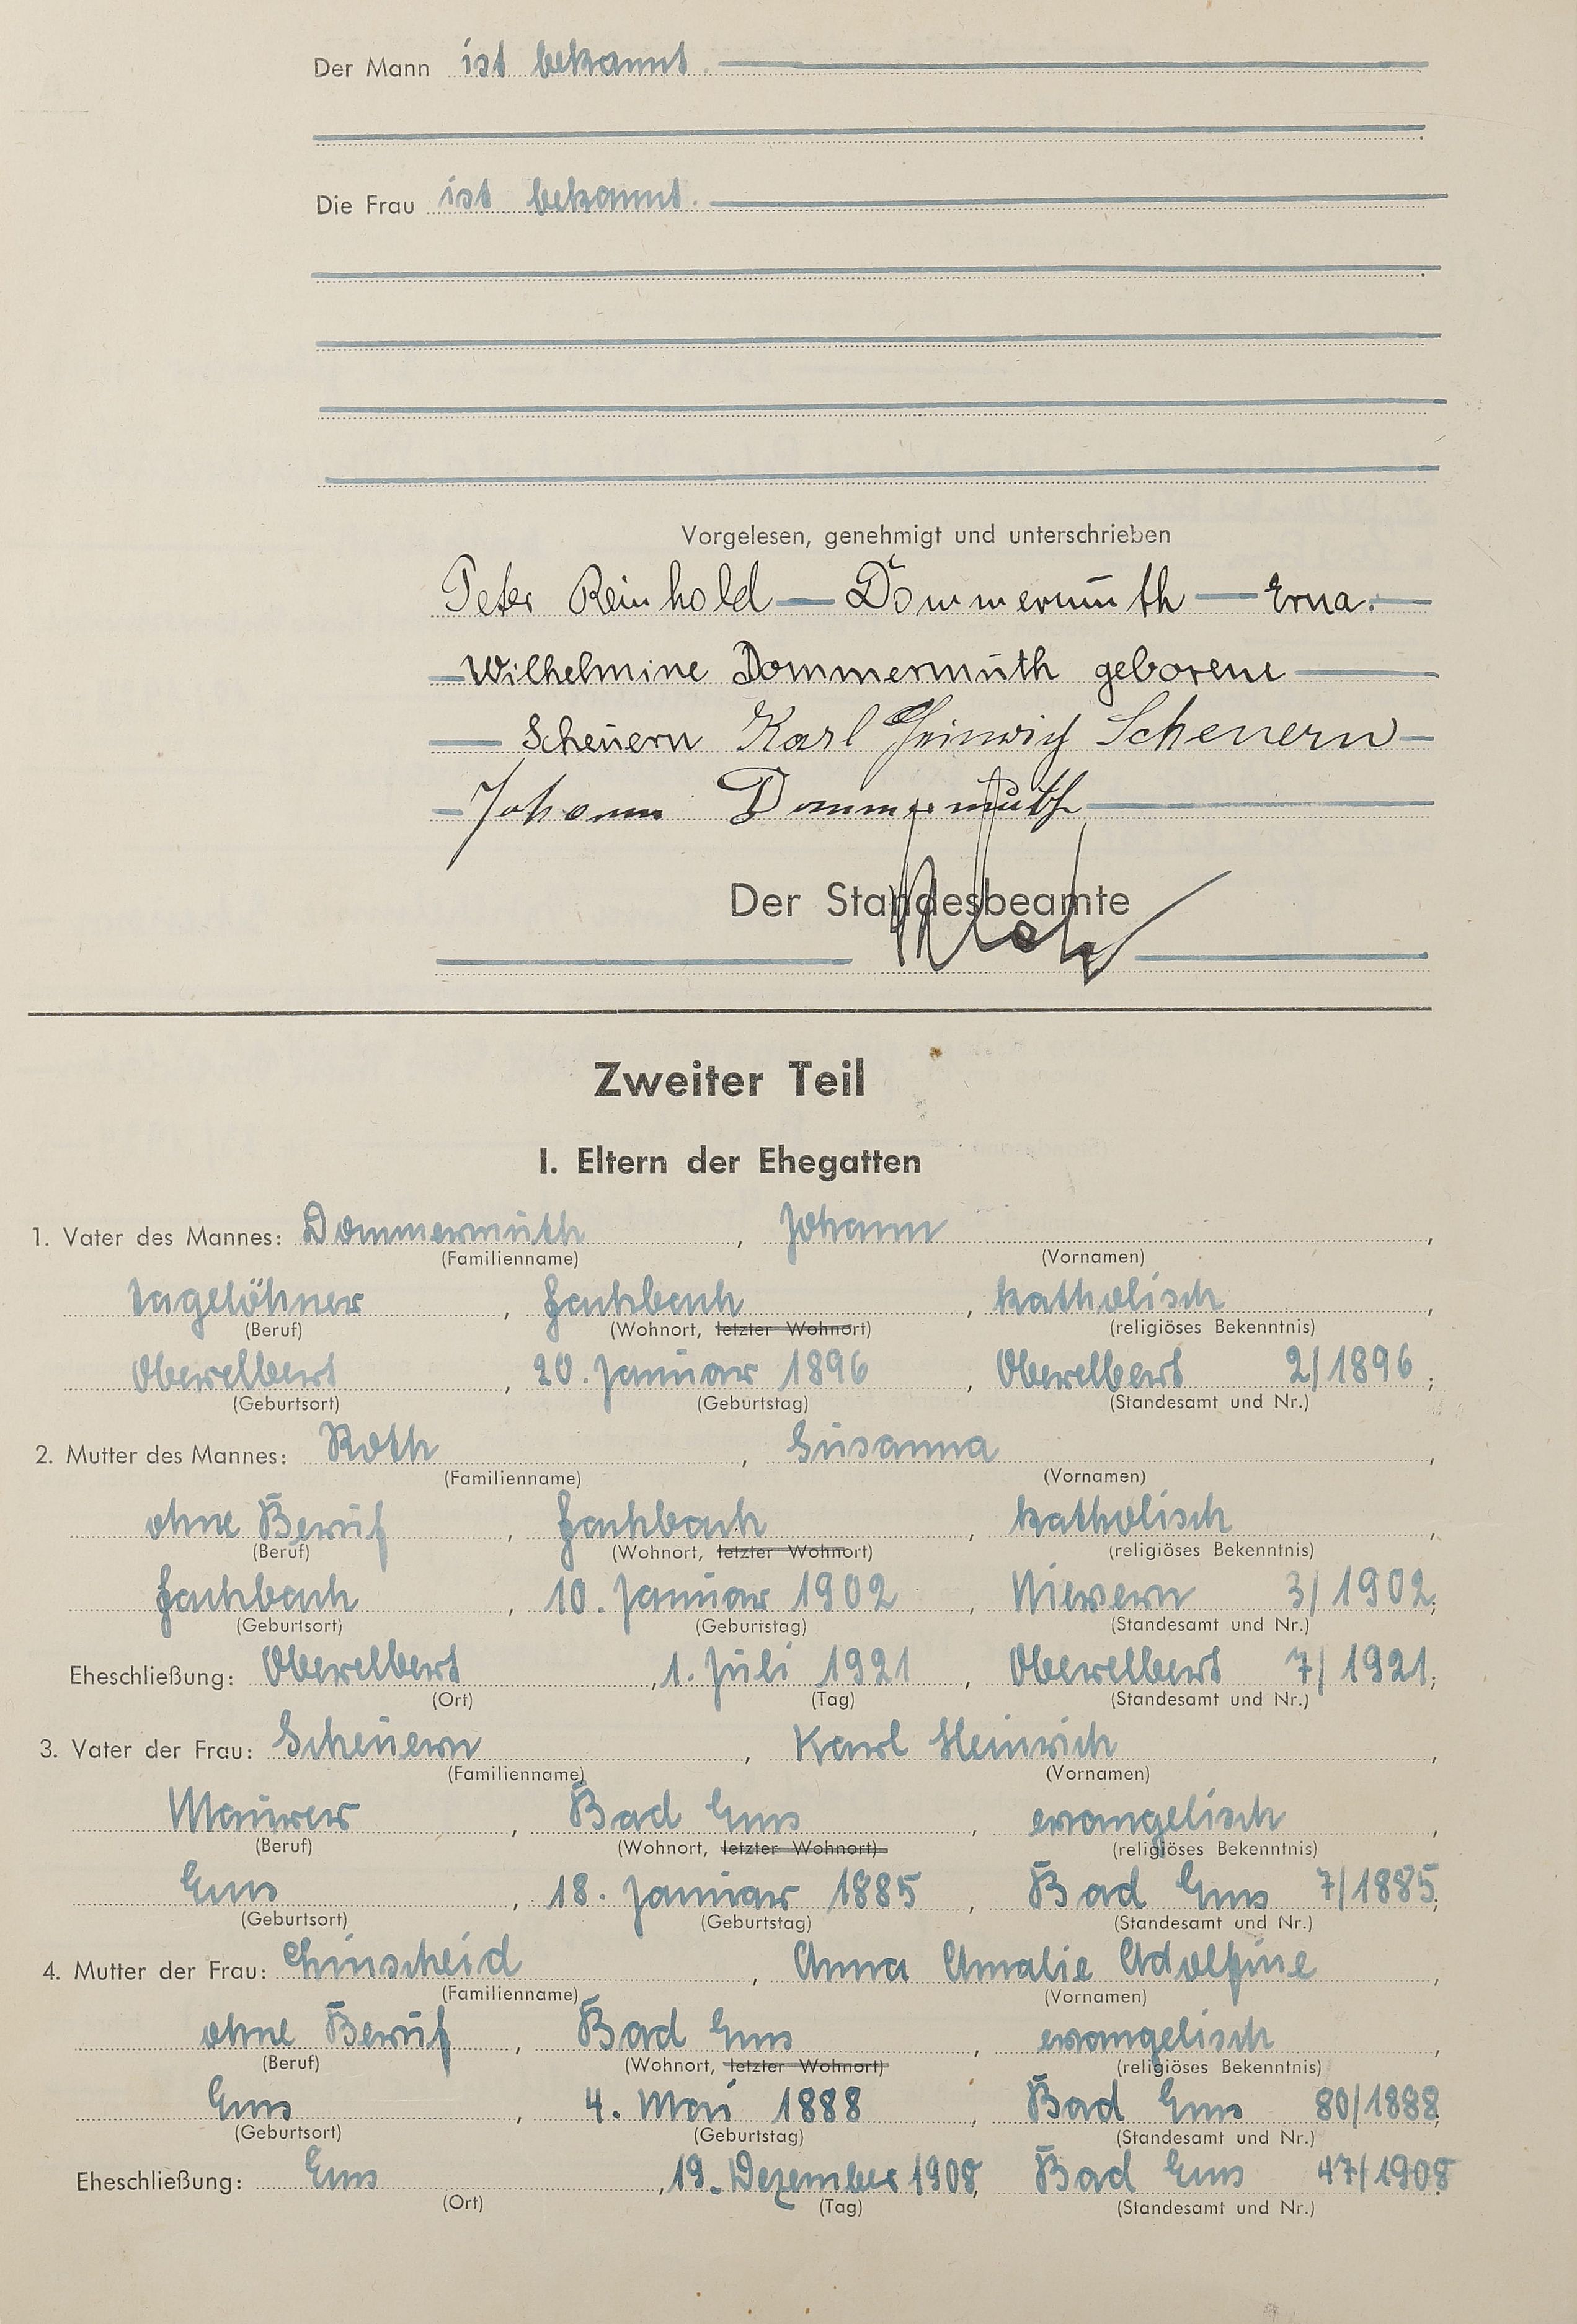 Der Mann ist bekannt.
Die Frau ist bekannt.
Vorgelesen, genehmigt und unterschrieben
Peter Reinhold Dommermuth Erna
Wilhelmine Dommermuth geborene
Scheuern Karl Heinrich Scheuern
Johann Dommermuth
Der Standesbeamte
Zweiter Teil
I. Eltern der Ehegatten
1. Vater des Mannes: Dommermuth, Johann,
(Familienname) (Vornamen)
Tagelöhner, Fachbach, katholisch,
(Beruf) (Wohnort, letzter Wohnort) (religiöses Bekenntnis)
Oberelbert, 20. Januar 1896, Oberelbert 2/1896;
(Geburtsort) (Geburtstag) (Standesamt und Nr.)
2. Mutter des Mannes: Roth, Susanna,
(Familienname) (Vornamen)
ohne Beruf, Fachbach, katholisch,
(Beruf) (Wohnort, letzter Wohnort) (religiöses Bekenntnis)
Fachbach, 10. Januar 1902, Nievern 3/1902;
(Geburtsort) (Geburtstag) (Standesamt und Nr.)
Eheschließung: Oberelbert, 1. Juli 1921, Oberelbert 7/1921;
(Ort) (Tag) (Standesamt und Nr.)
3. Vater der Frau: Scheuern, Karl Heinrich,
(Familienname) (Vornamen)
Maurer, Bad Ems, evangelisch,
(Beruf) (Wohnort, letzter Wohnort) (religiöses Bekenntnis)
Ems, 18. Januar 1885, Bad Ems 7/1885;
(Geburtsort) (Geburtstag) (Standesamt und Nr.)
4. Mutter der Frau: Linscheid, Anna Amalie Adolfine,
(Familienname) (Vornamen)
ohne Beruf, Bad Ems, evangelisch,
(Beruf) (Wohnort, letzter Wohnort) (religiöses Bekenntnis)
Ems, 4. Mai 1888, Bad Ems 80/1888;
(Geburtsort) (Geburtstag) (Standesamt und Nr.)
Eheschließung: Ems, 19. Dezember 1908, Bad Ems 47/1908.
(Ort) (Tag) (Standesamt und Nr.)